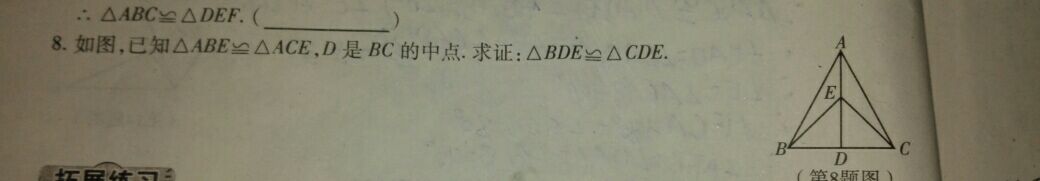 ∴ △ABC≌△DEF. (__________)
8. 如图,已知△ABE≌△ACE,D是BC的中点. 求证:△BDE≌△CDE.
A
E
B
D
C
(第8题图)
拓展练习